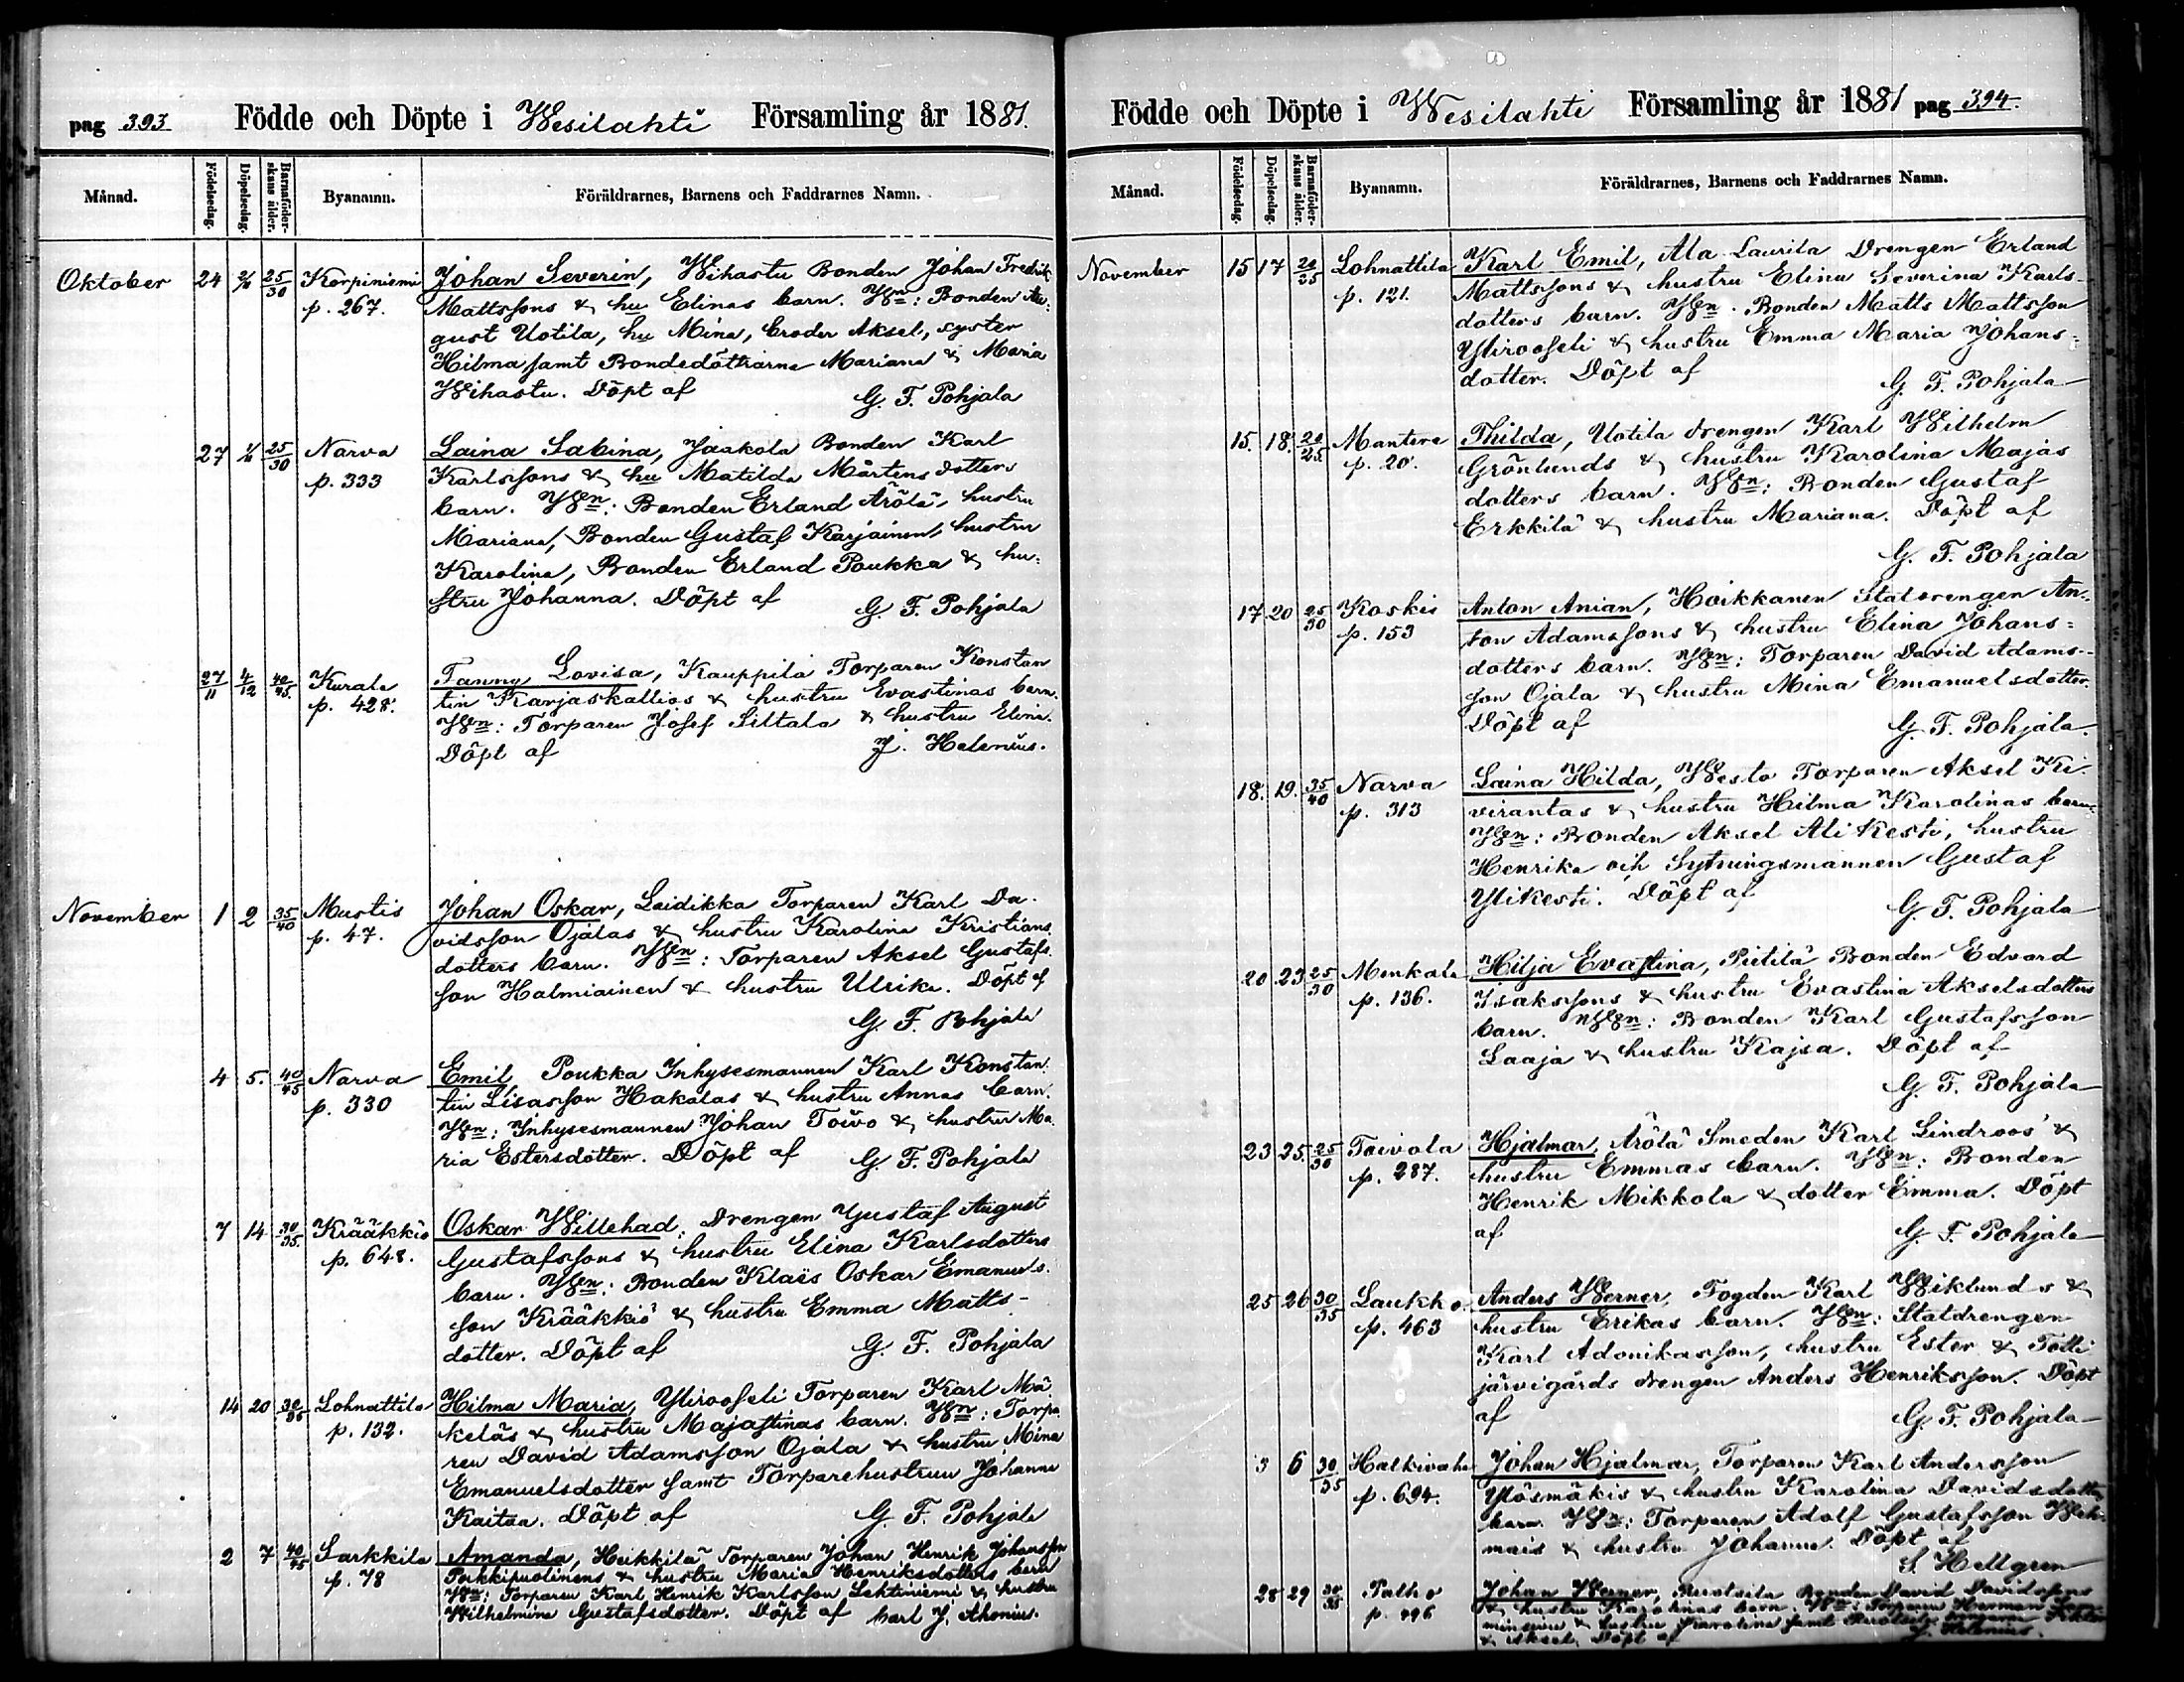 pag 393 Födde och Döpte i Wesilahti Församling år 1881.
Månad. Födelsedag. Döpelsedag. Barnaföderskans ålder. Byanamn. Föräldrarnes, Barnens och Faddrarnes Namn.
Oktober 24 25/30 Korpiniemi Johan Severin, Wihastu Bonden Johan Fredrik
p. 267. Mattssons & hu Elinas barn. Wn: Bonden Au-
gust Uotila, hu Mina, broder Aksel, syster
Hilma samt Bondedöttrarne Mariana & Maria
Wihastu. Döpt af G. F. Pohjala
27 25/30 Narva Laina Sabina, Jaakola Bonden Karl
p. 333 Karlssons & hu Matilda Mårtens dotters
barn. Wn: Bonden Erland Arölä, hustru
Mariana, Bonden Gustaf Karjainen, hustru
Karolina, Bonden Erland Poukka & hu-
stru Johanna. Döpt af G. F. Pohjala
27/11 4/12 40/45 Kurala Fanny Lovisa, Kauppila Torparen Konstan
p. 428. tin Karjaskallios & hustru Evastinas barn.
Wn: Torparen Josef Siltala & hustru Elina.
Döpt af J. Helenius.
November 1 2 35/40 Mustis Johan Oskar, Laidikka Torparen Karl Da-
p. 47. vidsson Ojalas & hustru Karolina Kristians
dotters barn. Wn: Torparen Aksel Gustafs
son Halmiainen & hustru Ulrika. Döpt af
G. F. Pohjala
4 5. 40/45 Narva Emil, Poukka Inhysesmannen Karl Konstan
p. 330 tin Lisasson Hakalas & hustru Annas barn.
Wn: Inhysesmannen Johan Toivo & hustru Ma-
ria Estersdotter. Döpt af G. F. Pohjala
7 14 30/35 Krääkkiö Oskar Willehad, Drengen Gustaf August
p. 648. Gustafssons & hustru Elina Karlsdotters
barn. Wn: Bonden Klaës Oskar Emanuels-
son Krääkkiö & hustru Emma Matts-
dotter. Döpt af G. F. Pohjala
14 20 30/35 Lohnattila Hilma Maria, Yliroofeli Torparen Karl Mä-
p. 132. keläs & hustru Majastinas barn. Wn: Torpa-
ren David Adamsson Ojala & hustru Mina
Emanuelsdotter samt Torparehustrun Johanna
Kaitaa. Döpt af G. F. Pohjala
2 7 40/45 Sarkkila Amanda, Heikkilä Torparen Johan Henrik Johansson
p. 78 & hustru Maria Henriksdotters barn
Wn: Torparen Karl Henrik Karlsson Lehtiniemi & hustru
Wilhelmina Gustafsdotter. Döpt af Carl J. Ahonius.
Födde och Döpte i Wesilahti Församling år 1881 pag 394.
Månad. Födelsedag. Döpelsedag. Barnaföderskans ålder. Byanamn. Föräldrarnes, Barnens och Faddrarnes Namn.
November 15 17 20/25 Lohnattila Karl Emil, Ala Laurila Drengen Erland
p. 121. Mattssons & hustru Elina Severina Karls-
dotters barn. Wn. Bonden Matts Mattsson
Yliroofeli & hustru Emma Maria Johans-
dotter. Döpt af G. F. Pohjala
15. 18. 20/25 Mantere Thilda, Uotila drengen Karl Wilhelm
p. 20. Grönlunds & hustru Karolina Majas
dotters barn. Wn: Bonden Gustaf
Erkkilä & hustru Mariana. Döpt af
G. F. Pohjala
17 20 25/30 Koskis Anton Anian, Hoikkanen Statdrengen An-
p. 153 ton Adamssons & hustru Elina Johans-
dotters barn. Wn: Torparen David Adams-
son Ojala & hustru Mina Emanuelsdotter.
Döpt af G. F. Pohjala.
18. 19. 35/40 Narva Laina Hilda, Westo Torparen Aksel Ki-
p. 313 virantas & hustru Hilma Karolinas barn.
Wn: Bonden Aksel Alikesti, hustru
Henrika och Sytningsmannen Gustaf
Ylikesti. Döpt af G. F. Pohjala
20 23 25/30 Menkala Hilja Evastina, Pietilä Bonden Edvard
p. 136. Isakssons & hustru Evastina Akselsdotters
barn. Wn: Bonden Karl Gustafsson
Laaja & hustru Kajsa. Döpt af
G. F. Pohjala
23 25 25/30 Toivola Hjalmar, Arölä Smeden Karl Lindroos' &
p. 287. hustru Emmas barn. Wn: Bonden
Henrik Mikkola & dotter Emma. Döpt
af G. F. Pohjala
25 26 30/35 Laukko Anders Werner, Fogden Karl Wiklunds &
p. 463 hustru Erikas barn. Wn: Statdrengen
Karl Adonikasson, hustru Ester & Totti
järvigårds drengen Anders Henriksson. Döpt
af G. F. Pohjala
3 6 30/35 Halkivaha Johan Hjalmar, Torparen Karl Andersson
p. 694. Ylösmäkis & hustru Karolina Davidsdotters
barn. Wn: Torparen Adolf Gustafsson Weh-
mais & hustru Johanna. Döpt af
S. Hellgren
28 29 30/35 Palho Johan Werner, Bonden David Davidssons
p. 496 & hustru Karolinas barn. Wn: Torparen Herman
& hustru Karolina samt
& Aksel. Döpt af J. Helenius.